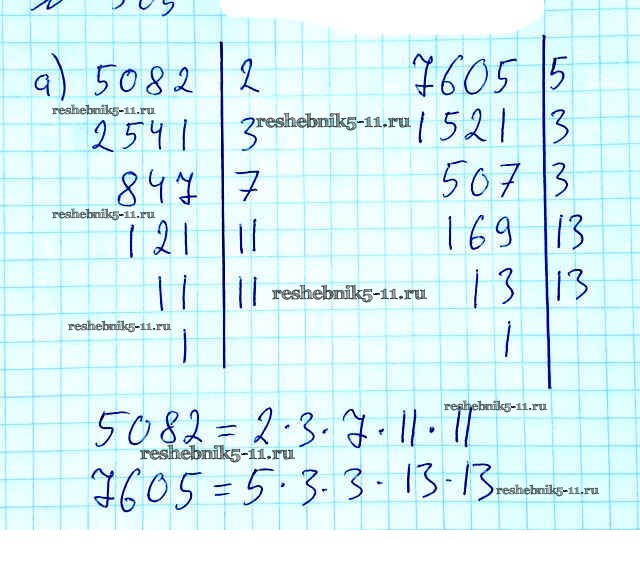 а) 5082 | 2 7605 | 5
reshebnik5-11.ru
2541 | 3 reshebnik5-11.ru 1521 | 3
847 | 7 507 | 3
reshebnik5-11.ru
121 | 11 169 | 13
11 | 11 reshebnik5-11.ru 13 | 13
reshebnik5-11.ru
1 | 1 |
reshebnik5-11.ru
5082 = 2 · 3 · 7 · 11 · 11
reshebnik5-11.ru
7605 = 5 · 3 · 3 · 13 · 13
reshebnik5-11.ru